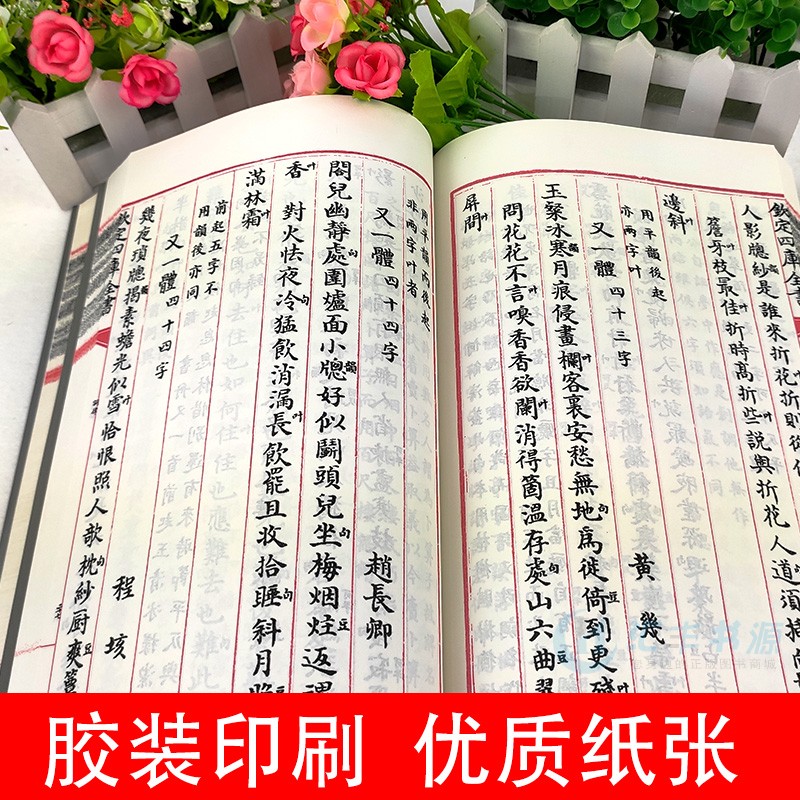 欽定四庫全
人影牕紗是誰來折花折則從
簷牙枝最佳叶折時髙折些叶説與折花人道句須插向
邊斜叶
用平韻後起
亦兩字叶
又一體 四十三字
黄幾
玉粲冰寒韻月痕侵畫欄叶客裏安愁無地句爲徙倚豆到更殘叶
問花花不言叶嗅香香欲闌叶消得箇溫存處句山六曲豆翠
屏間叶
用平韻而後起
非兩字叶者
又一體 四十四字
趙長卿
閣兒幽靜處句圍爐面小牕韻好似鬬頭兒坐句梅烟炷豆返
香叶對火怯夜冷句猛飲消漏長叶飲罷且收拾睡句斜月
滿林霜叶
前起五字不
用韻後亦同
又一體 四十四字
程垓
幾夜瑣牕揭韻素蟾光似雪叶恰恨照人欹枕句紗厨爽豆簟
欽定四庫全書
胶装印刷 优质纸张